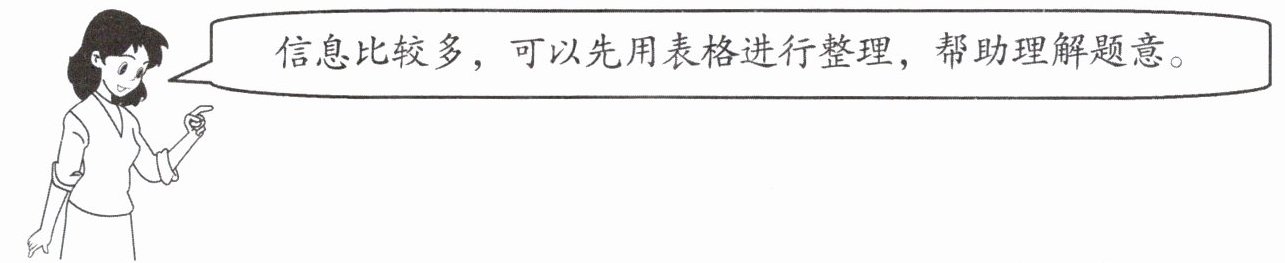 信息比较多，可以先用表格进行整理，帮助理解题意。